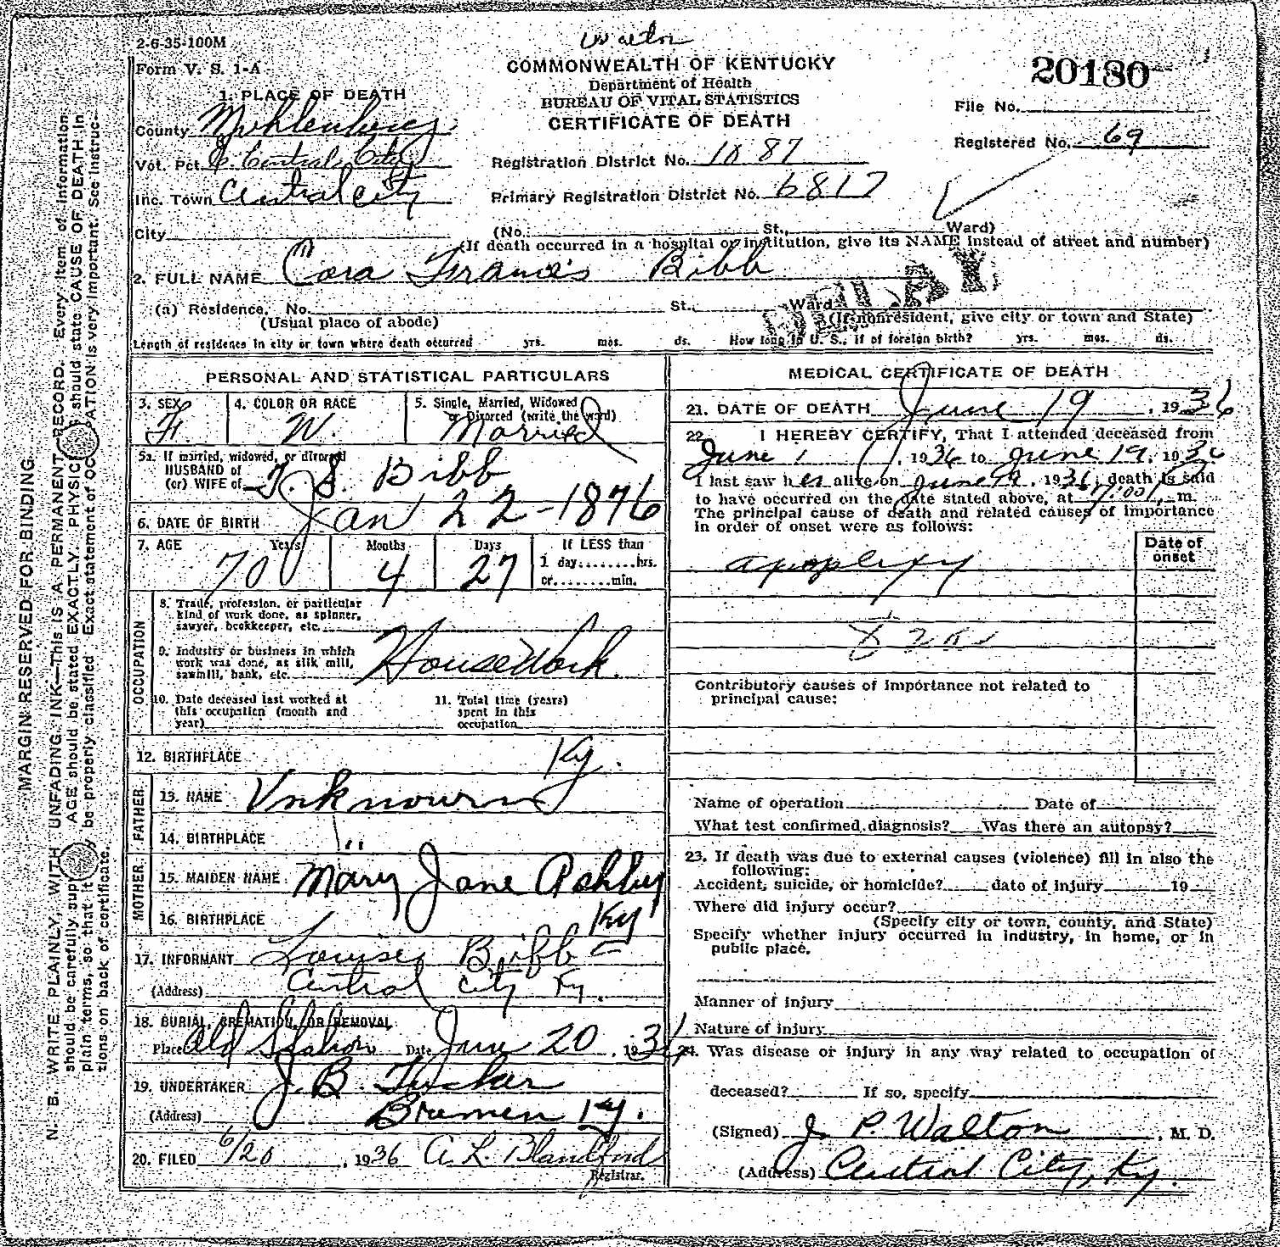 Walton
2-6-35-100M
Form V. S. 1-A
COMMONWEALTH OF KENTUCKY
Department of Health
BUREAU OF VITAL STATISTICS
CERTIFICATE OF DEATH
20180
File No.
Registered No. 69
1. PLACE OF DEATH
County Muhlenberg
Vot. Pct. E. Central City
Inc. Town Central City
City
Registration District No. 1087
Primary Registration District No. 6817
(No. St., Ward)
(If death occurred in a hospital or institution, give its NAME instead of street and number)
2. FULL NAME Cora Frances Bibb
(a) Residence, No. St., Ward
(Usual place of abode) (If nonresident, give city or town and State)
Length of residence in city or town where death occurred yrs. mos. ds. How long in U. S., if of foreign birth? yrs. mos. ds.
PERSONAL AND STATISTICAL PARTICULARS
3. SEX F. 4. COLOR OR RACE W. 5. Single, Married, Widowed or Divorced (write the word) Married
5a. If married, widowed, or divorced
HUSBAND of
(or) WIFE of T. S. Bibb
6. DATE OF BIRTH Jan 22-1876
7. AGE Years Months Days If LESS than
70 4 27 1 day........hrs.
or........min.
OCCUPATION
8. Trade, profession, or particular
kind of work done, as spinner,
sawyer, bookkeeper, etc.
9. Industry or business in which
work was done, as silk mill,
sawmill, bank, etc. Housework.
10. Date deceased last worked at
this occupation (month and
year)
11. Total time (years)
spent in this
occupation
12. BIRTHPLACE Ky.
FATHER
13. NAME Unknown
14. BIRTHPLACE "
MOTHER
15. MAIDEN NAME Mary Jane Ashby
16. BIRTHPLACE Ky
17. INFORMANT Louise Bibb
(Address) Central City Ky.
18. BURIAL, CREMATION, OR REMOVAL
Place Old Station Date June 20, 1936
19. UNDERTAKER J. B. Tucker
(Address) Bremen Ky.
20. FILED 6/20, 1936 A. L. Blandford
Registrar.
MEDICAL CERTIFICATE OF DEATH
21. DATE OF DEATH June 19, 1936
22. I HEREBY CERTIFY, That I attended deceased from
June 1, 1936 to June 19, 1936
I last saw her alive on June 19, 1936, death is said
to have occurred on the date stated above, at m.
The principal cause of death and related causes of importance
in order of onset were as follows:
Date of
onset
apoplexy
Contributory causes of importance not related to
principal cause:
Name of operation Date of
What test confirmed diagnosis? Was there an autopsy?
23. If death was due to external causes (violence) fill in also the
following:
Accident, suicide, or homicide? date of injury 19
Where did injury occur?
(Specify city or town, county, and State)
Specify whether injury occurred in industry, in home, or in
public place.
Manner of injury
Nature of injury
24. Was disease or injury in any way related to occupation of
deceased? If so, specify
(Signed) J. P. Walton, M. D.
(Address) Central City, Ky.
MARGIN RESERVED FOR BINDING.
N. B. WRITE PLAINLY, WITH UNFADING INK—THIS IS A PERMANENT RECORD. Every item of information
should be carefully sup AGE should be stated EXACTLY. PHYSIC should state CAUSE OF DEATH in
plain terms, so that it be properly classified. Exact statement of OC ATION is very important. See instruc-
tions on back of certificate.